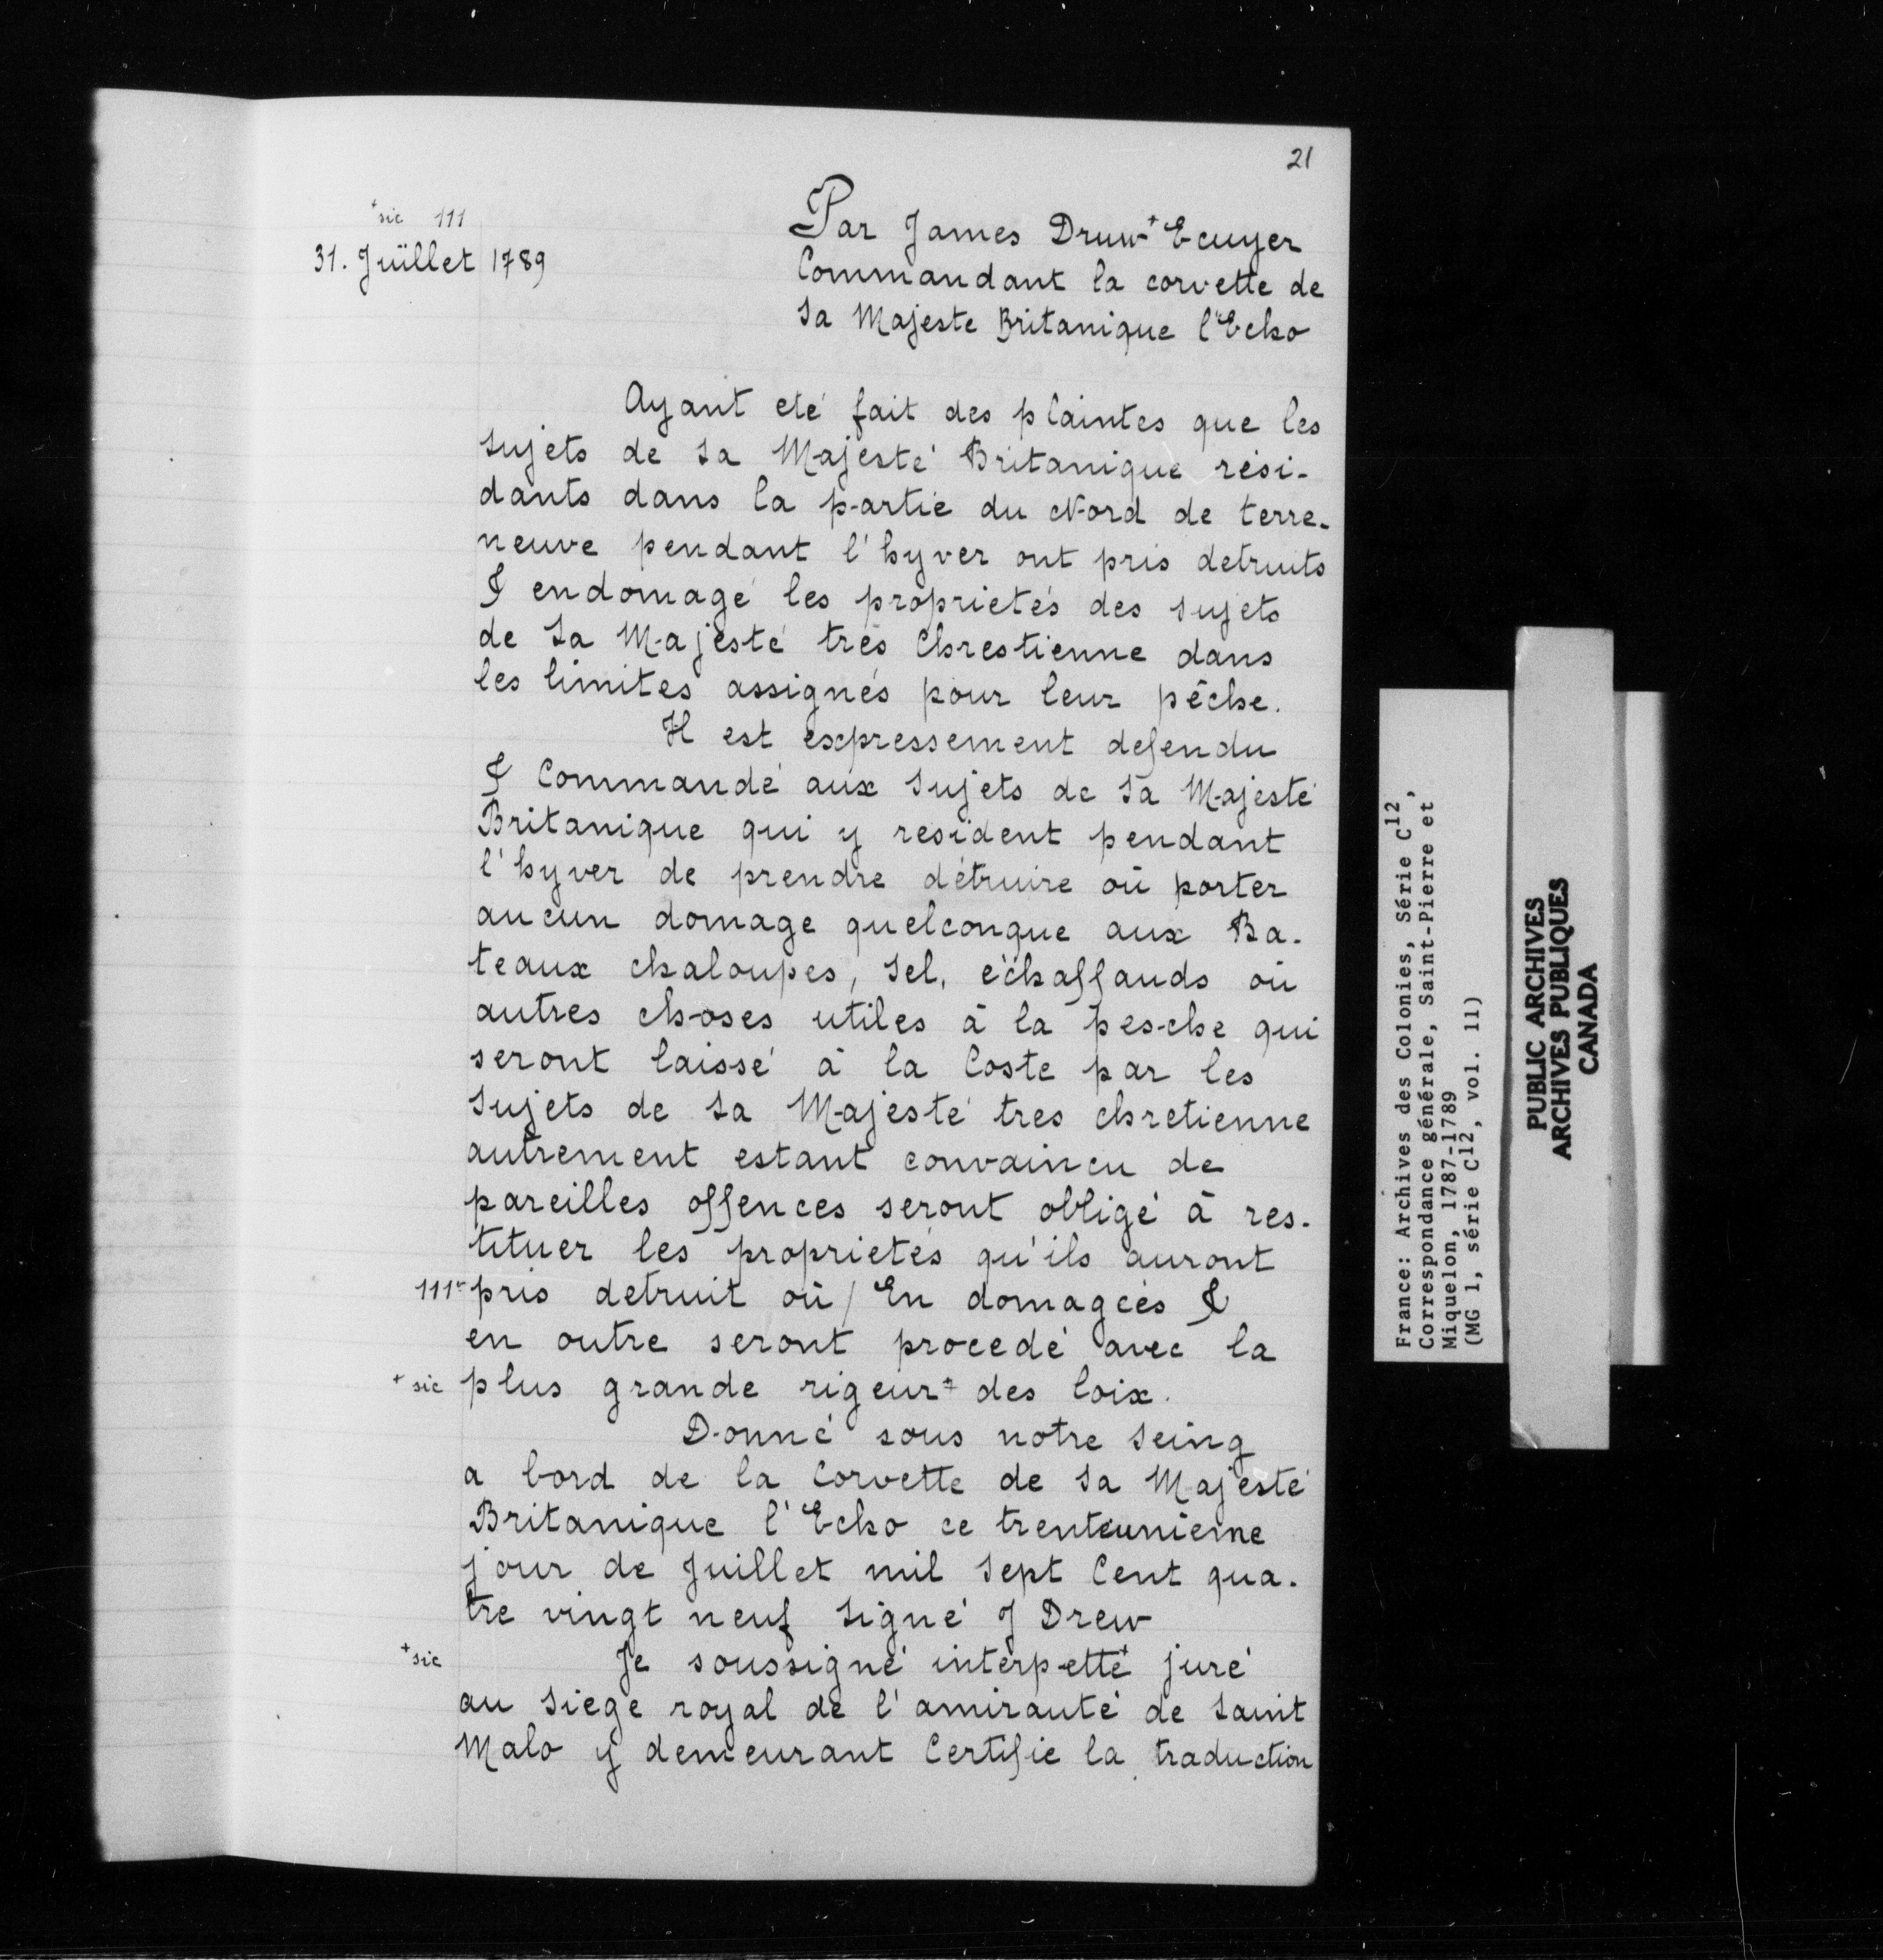 21
+sic 111
31. Juïllet 1789
Par James Druw+ Ecuyer
Commandant la corvette de
Sa Majeste Britanique l'Echo
Ayant eté fait des plaintes que les
Sujets de Sa Majesté Britanique rési-
dants dans la partie du Nord de terre-
neuve pendant l'hyver ont pris detruits
& endomagé les proprietés des Sujets
de Sa Majesté très Chrestienne dans
les limites assignés pour leur pêche.
Il est expressement defendu
& Commandé aux Sujets de Sa Majesté
Britanique qui y resident pendant
l'hyver de prendre détruire où porter
aucun domage quelconque aux Ba-
teaux chaloupes, Sel, échaffauds où
autres choses utiles à la pesche qui
seront laissé à la Coste par les
Sujets de Sa Majesté tres chretienne
autrement estant convaincu de
pareilles offences seront obligé à res-
tituer les proprietés qu'ils auront
111v pris detruit où / En domagées &
en outre seront procedé avec la
+ sic plus grande rigeur+ des loix.
Donné sous notre Seing
a bord de la Corvette de Sa Majesté
Britanique l'Echo ce trenteunieme
jour de Juillet mil Sept Cent qua-
tre vingt neuf Signé J Drew
+sic Je soussigné interpetté+ juré
au Siege royal de l'amirauté de Saint
Malo y demeurant Certifie la traduction
France: Archives des Colonies, Série C12,
Correspondance générale, Saint-Pierre et
Miquelon, 1787-1789
(MG 1, série C12, vol. 11)
PUBLIC ARCHIVES
ARCHIVES PUBLIQUES
CANADA